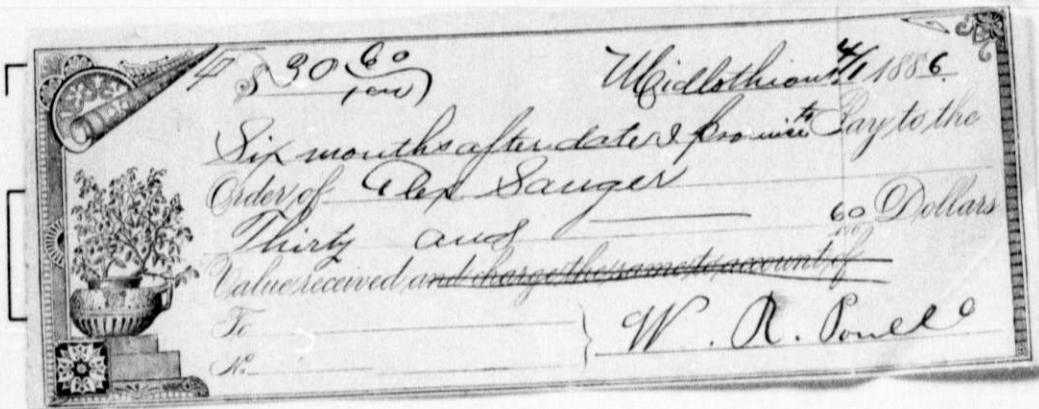 $ 30 60/100 Midlothian 4/1 1886.
Six months after date I promise to Pay to the
Order of Alex Sanger
Thirty and 60/100 Dollars
Value received and charge the same to account of
To
No.
W. R. Powell